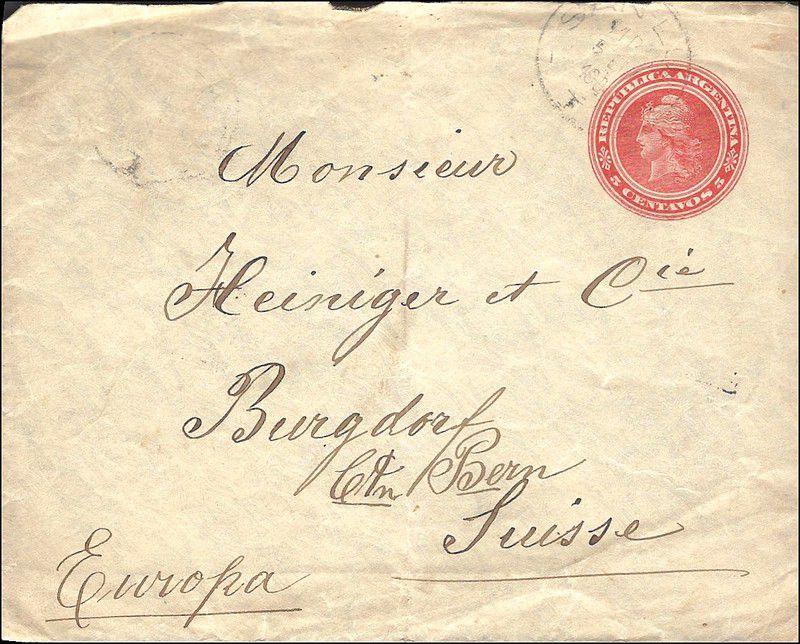 REPUBLICA ARGENTINA
5 CENTAVOS 5
Monsieur
Heiniger et Cie
Burgdorf
Ctn Bern
Suisse
Europa